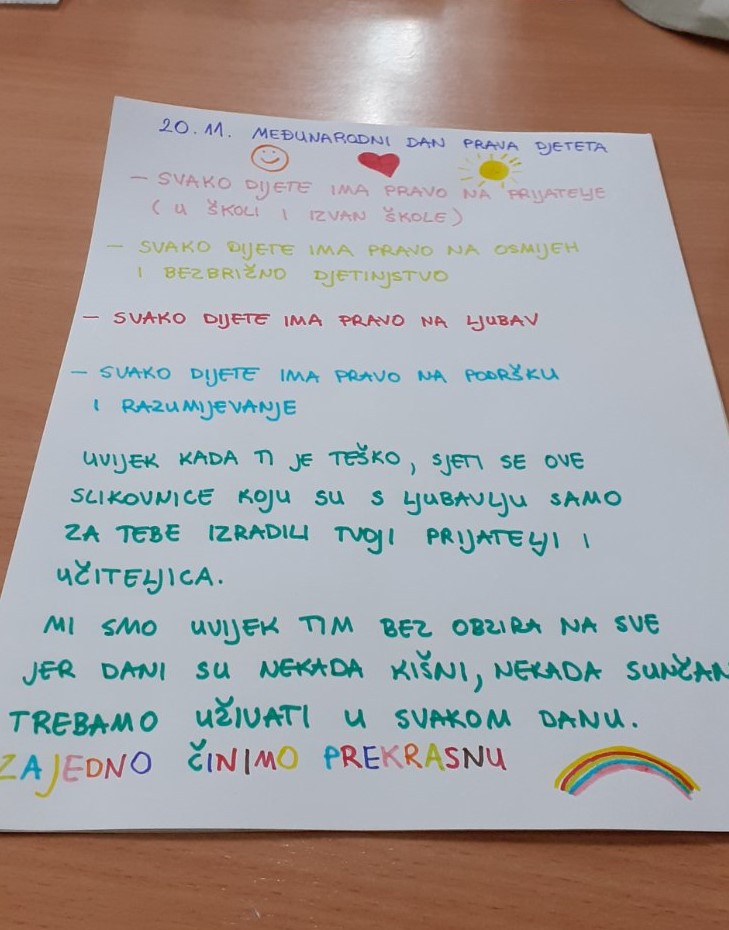 20.11. MEĐUNARODNI DAN PRAVA DJETETA
- SVAKO DIJETE IMA PRAVO NA PRIJATELJE
( U ŠKOLI I IZVAN ŠKOLE )
- SVAKO DIJETE IMA PRAVO NA OSMIJEH
I BEZBRIŽNO DJETINJSTVO
- SVAKO DIJETE IMA PRAVO NA LJUBAV
- SVAKO DIJETE IMA PRAVO NA PODRŠKU
I RAZUMIJEVANJE
UVIJEK KADA TI JE TEŠKO, SJETI SE OVE
SLIKOVNICE KOJU SU S LJUBAVLJU SAMO
ZA TEBE IZRADILI TVOJI PRIJATELJI I
UČITELJICA.
MI SMO UVIJEK TIM BEZ OBZIRA NA SVE
JER DANI SU NEKADA KIŠNI, NEKADA SUNČAN
TREBAMO UŽIVATI U SVAKOM DANU.
ZAJEDNO ČINIMO PREKRASNU